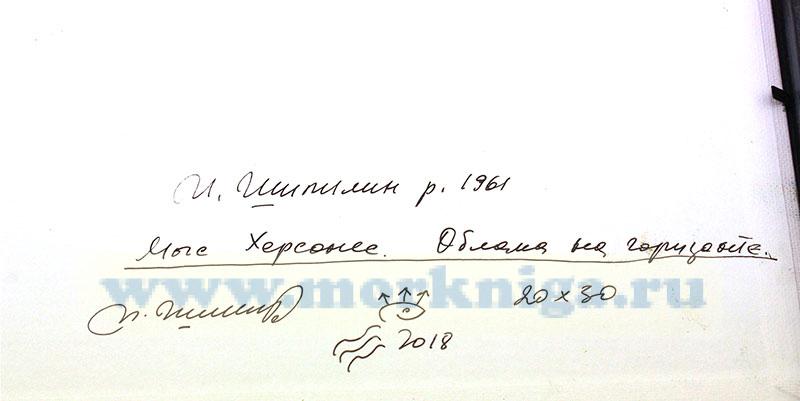 И. Шипилин р. 1961
Мыс Херсонес. Облака на горизонте.
www.morkniga.ru
20 x 30
И. Шипилин
2018